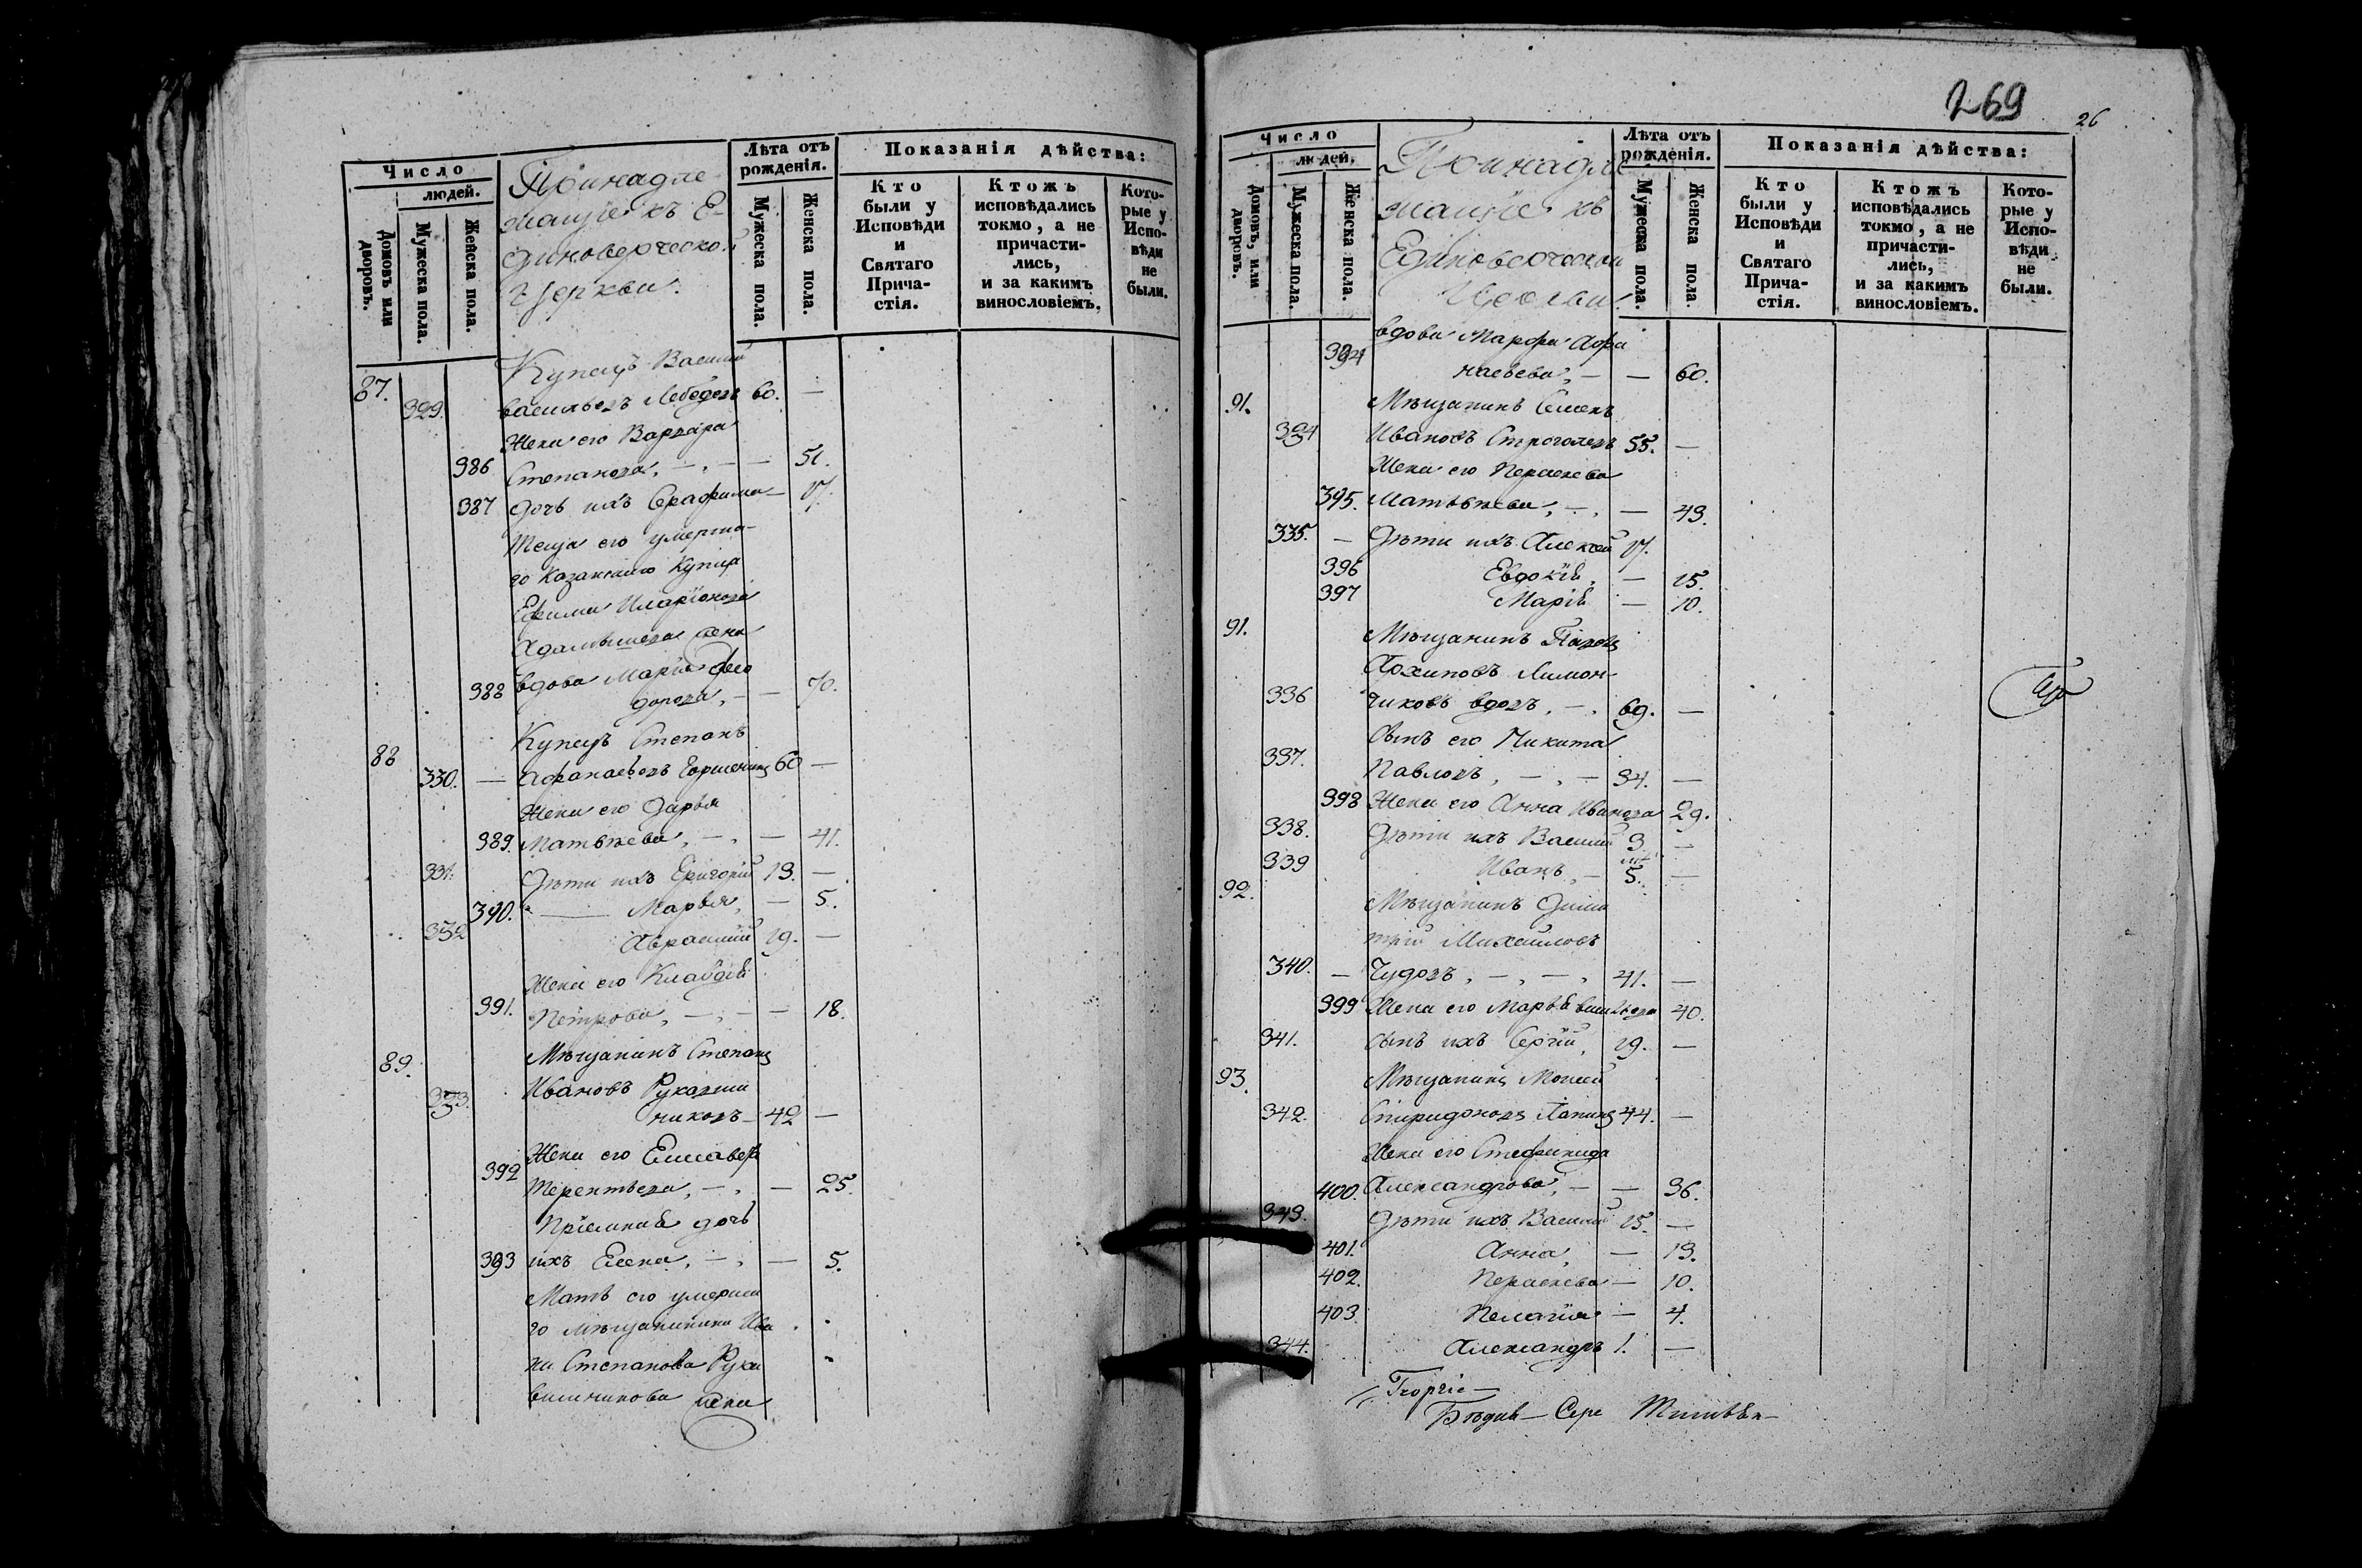 Число
людей.
Домовъ или дворовъ.
Мужеска пола.
Женска пола.
Принадле-
жащіе къ Е-
диноверческой
Церкви.
Лѣта отъ рожденія.
Мужеска пола.
Женска пола.
Показанія дѣйства:
Кто были у Исповѣди и Святаго Прича-стія.
Ктожъ исповѣдались токмо, а не причасти-лись, и за какимъ винословіемъ.
Кото-рые у Испо-вѣди не были.
Купецъ Василій
87. 329. Васильевъ Лебедевъ 60. —
Жена его Варвара
386 Степанова, — , — — 51.
387 Дочь ихъ Серафима — 17.
Теща его умерша-
го Казанскаго Купца
Ефима Иларіонова
жена
388 вдова Марія Фео
дорова, — — 70.
Купецъ Степанъ
88 330. — Афанасьевъ 60 —
Жена его Дарья
389. Матвѣева, — , — 41.
331. Дѣти ихъ Григорій 13. —
390. — Марья, — 5.
332 Авраамій 19. —
Жена его Клавдія
391. Петрова, — , — — 18.
89. Мѣщанинъ Степанъ
Ивановъ Рукавиш
333. никовъ — 42 —
Жена его Елисавета
392 Терентьева, — , — 25.
Пріемная дочь
393 ихъ Елена, — , — 5.
Мать его умерша
го мѣщанина Ива
на Степанова Рука
вишникова жена
269
26
Число
людей.
Домовъ, или дворовъ.
Мужеска пола.
Женска пола.
Принадле
жащіе къ
Единоверческой
Церкви.
Лѣта отъ рожденія.
Мужеска пола.
Женска пола.
Показанія дѣйства:
Кто были у Исповѣди и Святаго Прича-стія.
Ктожъ исповѣдались токмо, а не причасти-лись, и за какимъ винословіемъ.
Кото-рые у Испо-вѣди не были.
вдова Марфа Афа
394 насьева, — — 60.
91. Мѣщанинъ Семенъ
334 Ивановъ 55. —
Жена его Параскева
395. Матвѣева, — , — 43.
335. — Дѣти ихъ Алексей 17.
396 Евдокія, — 15.
397 Марія — 10.
91. Мѣщанинъ Павелъ
Архиповъ Лимон-
336 чиковъ вдовъ, — , 69. —
Сынъ его Никита
337. Павловъ, — , — 34. —
398 Жена его Анна Иванова 29.
338. Дѣти ихъ Василій 3 —
339 Иванъ, — 5. —
92. Мѣщанинъ Дими
трій Михайловъ
340. — Чудовъ, — , — , 41. —
399 Жена его Марья Васильева 40.
341. Сынъ ихъ Сергій, 19. —
93. Мѣщанинъ Моисей
342. Спиридоновъ Лапинъ 44. —
Жена его Стефанида
400. Александрова, — — 36.
343. Дѣти ихъ Василій 15. —
401. Анна, — 13.
402. Параскева — 10.
403 Пелагія — 4.
344. Александръ 1. —